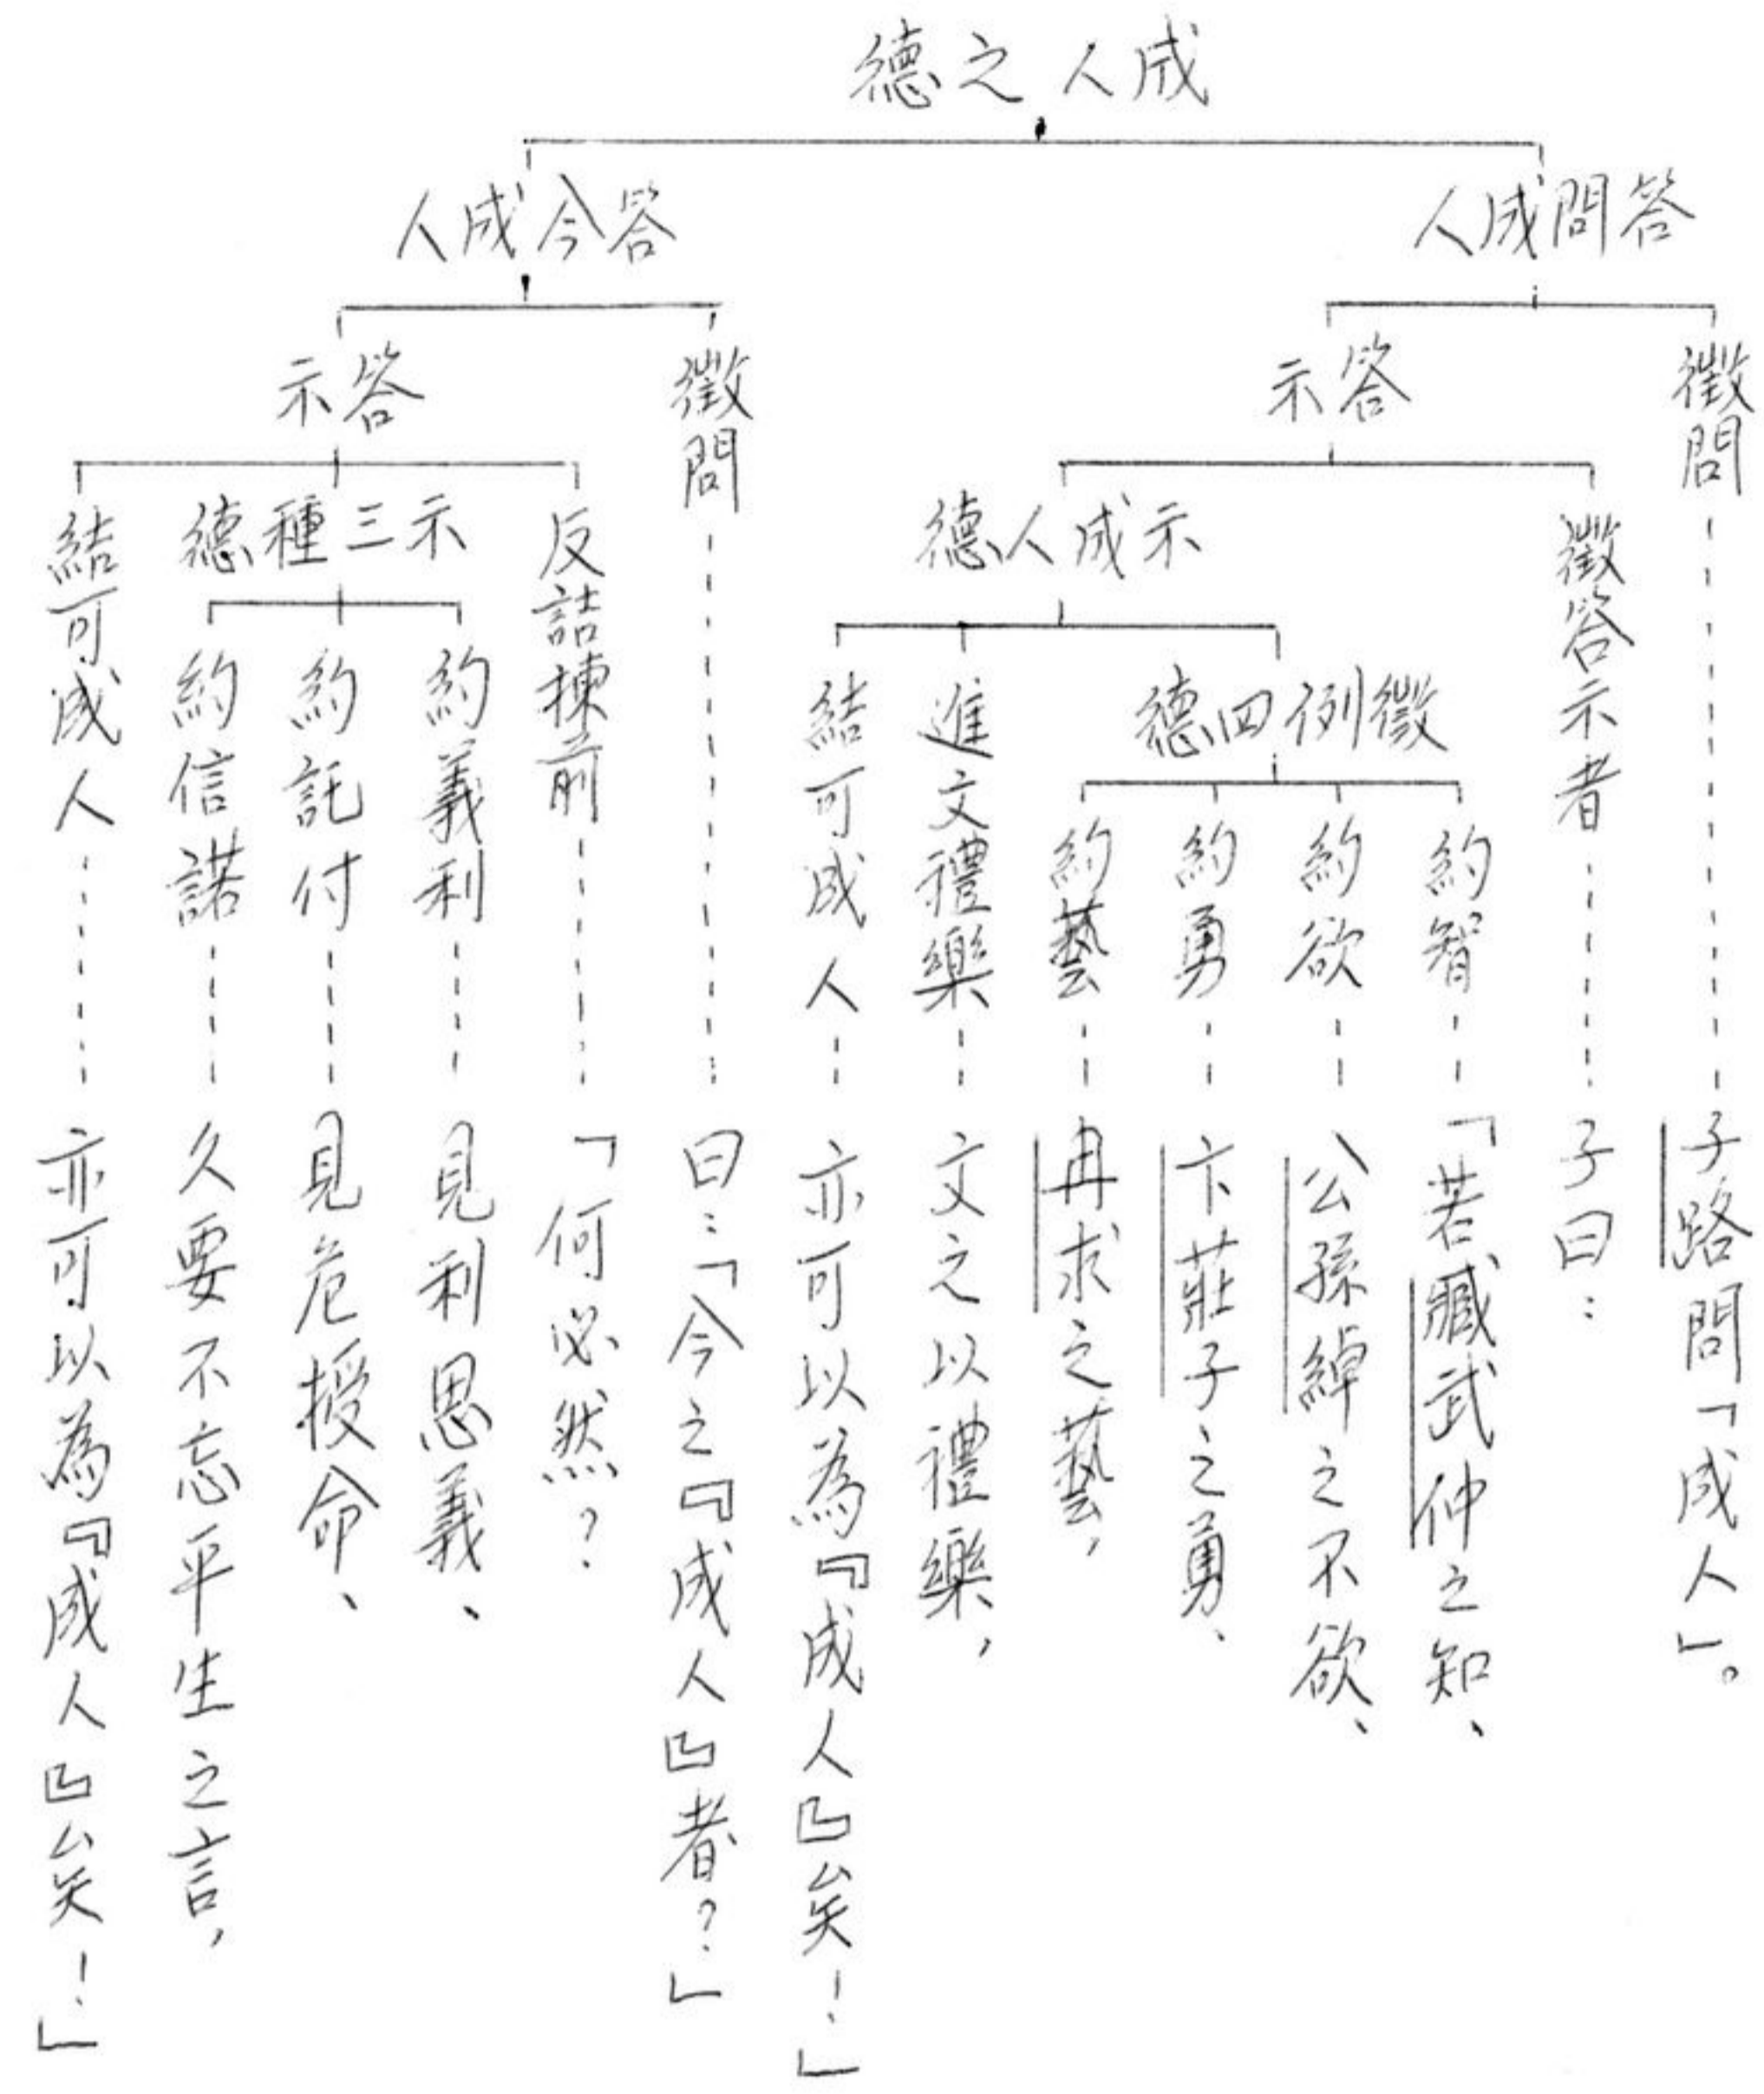 成人之德
答問成人
徵問
子路問「成人」。
答示
徵答示者
子曰：
示成人德
徵例四德
約智
「若臧武仲之知、
約欲
公孫綽之不欲、
約勇
卞莊子之勇、
約藝
冉求之藝，
進文禮樂
文之以禮樂，
結可成人
亦可以為『成人』矣！」
答今成人
徵問
曰：「今之『成人』者？」
答示
反詰揀前
「何必然？
示三種德
約義利
見利思義、
約託付
見危授命、
約信諾
久要不忘平生之言，
結可成人
亦可以為『成人』矣！」